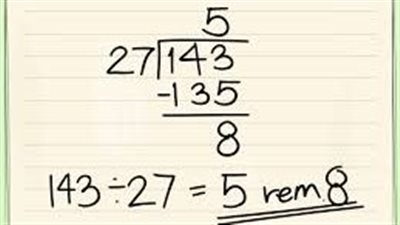 5
27)143
-135
8
143÷27 = 5 rem.8